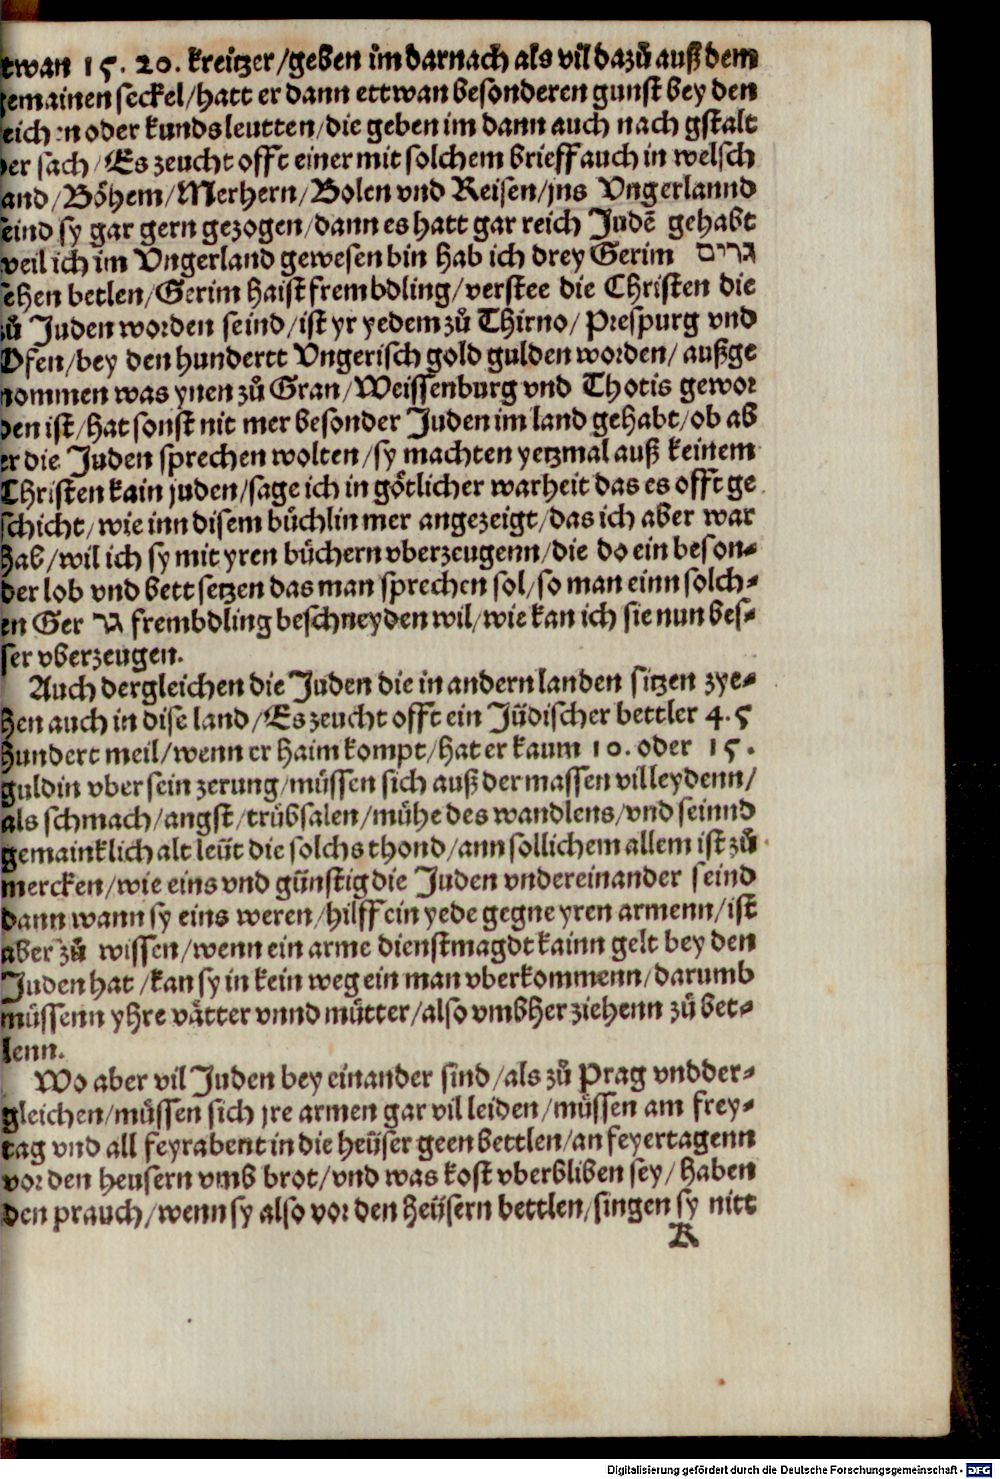 twan 15. 20. kreitzer/geben im darnach als vil dazů auß dem
gemainen seckel/hatt er dann ettwan besonderen gunst bey den
reichen oder kundsleutten/die geben im dann auch nach gstalt
der sach/Es zeucht offt einer mit solchem brieff auch in welsch
land/Böhem/Merhern/Bolen vnd Reisen/jns Vngerlannd
seind sy gar gern gezogen/dann es hatt gar reich Judē gehabt
weil ich im Vngerland gewesen bin hab ich drey Gerim גרים
sehen betlen/Gerim haist frembdling/verstee die Christen die
zů Juden worden seind/ist yr yedem zů Thirno/Prespurg vnd
Ofen/bey den hundertt Vngerisch gold gulden worden/außge
nommen was ynen zů Gran/Weissenburg vnd Thotis gewor
den ist/hat sonst nit mer besonder Juden im land gehabt/ob ab
er die Juden sprechen wolten/sy machten yetzmal auß keinem
Christen kain juden/sage ich in götlicher warheit das es offt ge
schicht/wie inn disem büchlin mer angezeigt/das ich aber war
hab/wil ich sy mit yren büchern vberzeugenn/die do ein beson-
der lob vnd bett setzen das man sprechen sol/so man einn solch-
en Ger גר frembdling beschneyden wil/wie kan ich sie nun bes-
ser vberzeugen.
Auch dergleichen die Juden die in andern landen sitzen zye-
hen auch in dise land/Es zeucht offt ein Jüdischer bettler 4. 5
hundert meil/wenn er haim kompt/hat er kaum 10. oder 15.
guldin vber sein zerung/müssen sich auß der massen vil leydenn/
als schmach/angst/trübsalen/mühe des wandlens/vnd seinnd
gemainklich alt leüt die solchs thond/ann sollichem allem ist zů
mercken/wie eins vnd günstig die Juden vndereinander seind
dann wann sy eins weren/hilff ein yede gegne yren armenn/ist
aber zů wissen/wenn ein arme dienstmagdt kainn gelt bey den
Juden hat/kan sy in kein weg ein man vberkommenn/darumb
müssenn yhre vätter vnnd mütter/also vmbher ziehenn zů bet-
lenn.
Wo aber vil Juden bey einander sind/als zů Prag vnd der-
gleichen/müssen sich jre armen gar vil leiden/müssen am frey-
tag vnd all feyrabent in die heüser geen bettlen/an feyertagenn
vor den heusern vmb brot/vnd was kost vberbliben sey/haben
den prauch/wenn sy also vor den heüsern bettlen/singen sy nitt
K
Digitalisierung gefördert durch die Deutsche Forschungsgemeinschaft - DFG